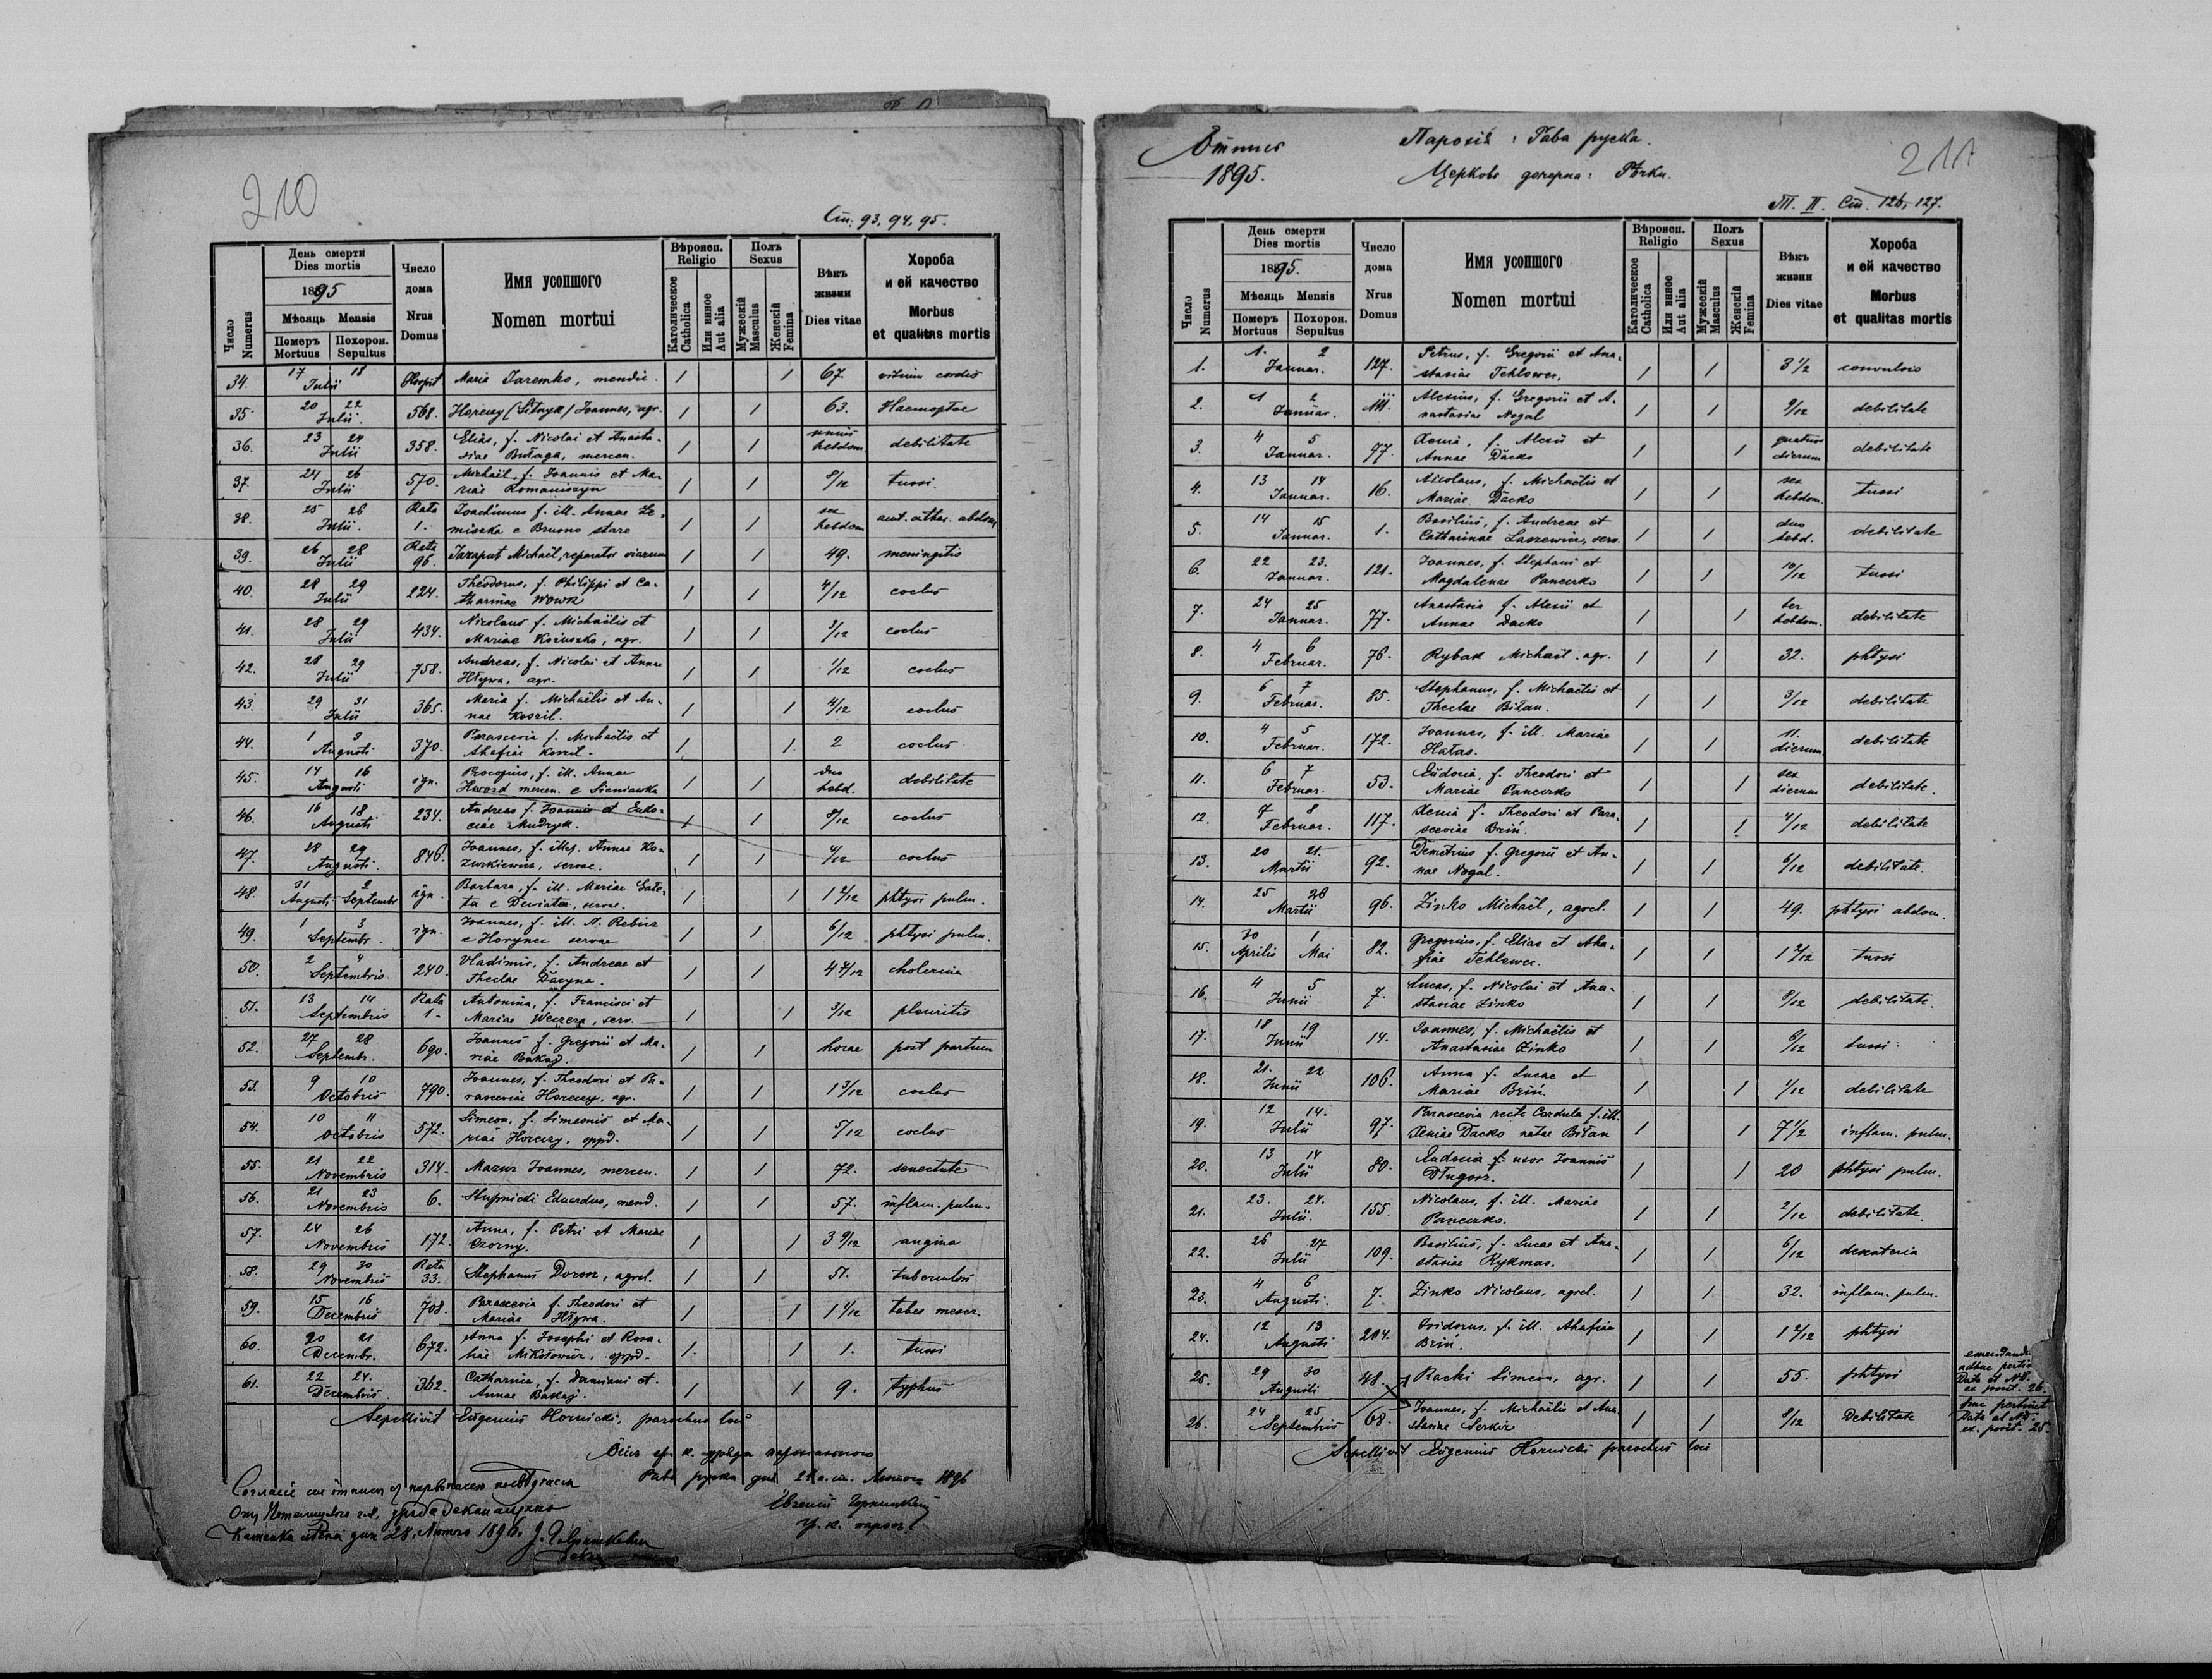 210
Ст. 93, 94, 95.
Число Numerus
День смерти Dies mortis
1895
Мѣсяць Mensis
Померъ Mortuus
Похорон. Sepultus
Число дома Nrus Domus
Имя усопшого
Nomen mortui
Вѣроисп. Religio
Католическое Catholica
Или инное Aut alia
Полъ Sexus
Мужескій Masculus
Женскій Femina
Вѣкъ жизни Dies vitae
Хороба и ей качество
Morbus et qualitas mortis
34. 17 18 Julii Maria Jaremko, mendic. 1 1 67. vitium cordis
35. 20 22 Julii 568. Horczy (Sitnyk) Joannes, agr. 1 1 63. Haemoptoe
36. 23 24 Julii 358. Elias, f. Nicolai et Anasta-
siae Bułaga, mercen. 1 1 unius hebdom. debilitate
37. 24 26 Julii 570. Michaël f. Joannis et Ma-
riae Romaniszyn 1 1 8/12 tussi.
38. 25 26 Julii Rata 1. Joachimus f. ill. Annae Le-
miszka e Bruono staro 1 1 sex hebdom abdom
39. 26 28 Julii Rata 96. Jaraput Michaël, reparator viarum 1 1 49. meningitis
40. 28 29 Julii 224. Theodorus, f. Philippi et Ca-
tharinae Wowk 1 1 4/12 coclus
41. 28 29 Julii 434. Nicolaus f. Michaëlis et
Mariae Koziuszko, agr. 1 1 3/12 coclus
42. 28 29 Julii 758. Andreas, f. Nicolai et Annae
Hływa, agr. 1 1 1/12 coclus
43. 29 31 Julii 365. Maria f. Michaëlis et An-
nae Koszil. 1 1 4/12 coclus
44. 1 3 Augusti 370. Parascevia f. Michaëlis et
Ahafiae Koszil. 1 1. 2 coclus
45. 14 16 Augusti ign. Procopius, f. ill. Annae
Hwozd mercen. e Sieniawka 1 1 duo hebd. debilitate
46. 16 18 Augusti 234. Andreas f. Joannis et Eudo-
ciae Mudryk. 1 1 8/12 coclus
47. 28 29 Augusti 846. Joannes, f. illeg. Annae Ko-
zurkiewicz, servae. 1 1 4/12 coclus
48. 31 Augusti 2 Septembr ign. Barbara, f. ill. Mariae Gałe-
ta e Dewiater, servae. 1 1 1 2/12 phtysi pulm.
49. 1 3 Septembr. ign. Joannes, f. ill. N. Rebisz
e Horynec servae 1 1 6/12 phtysi pulm.
50. 2 4 Septembris. 240. Vladimir, f. Andreae et
Theclae Dacyna. 1 1 4 4/12 cholerina
51. 13 14 Septembris Rata 1. Antonina, f. Francisci et
Mariae Weczera, serv. 1 1 3/12 pleuritis
52. 27 28 Septembr. 690. Joannes f. Gregorii et Ma-
riae Bakaj. 1 1 horae post partum
53. 9 10 Octobris 790. Joannes, f. Theodori et Pa-
rasceviae Horczy, agr. 1 1 1 3/12 coclus
54. 10 11 Octobris 572. Simeon, f. Simeonis et Ma-
riae Horczy, oppd. 1 1 5/12 coclus
55. 21 22 Novembris 314. Mazur Joannes, mercen. 1 1 72. senectute
56. 21 23 Novembris 6. Słupnicki Eduardus, mend. 1 1 57. inflam. pulm.
57. 24 26 Novembris 172. Anna, f. Petri et Mariae
Czorny. 1 1 3 9/12 angina
58. 29 30 Novembris Rata 33. Stephanus Dorosz, agrel. 1 1 51. tuberculosis
59. 15 16 Decembris 708. Parascevia f. Theodori et
Mariae Hływa. 1 1 1 1/12 tabes meser.
60. 20 21 Decembr. 672. Anna f. Josephi et Rosa-
liae Mikołowicz, oppd. 1. 1 1. tussi
61. 22 24. Decembris. 362. Catharina, f. Damiani et.
Annae Bakaj. 1 1 9. typhus
Sepelivit Eugenius Hornicki, parochus loci
Рава руска дня 24 1896
Евгеній Горницкій
гр. к. парох
Согласіє
28. Лютого 1896.
Отпис
1895.
Парохія: Рава руска.
Церковь дочерна: Рѣчки.
211
Т. II. Ст. 126, 127.
Число Numerus
День смерти Dies mortis
1895.
Мѣсяць Mensis
Померъ Mortuus
Похорон. Sepultus
Число дома Nrus Domus
Имя усопшого
Nomen mortui
Вѣроисп. Religio
Католическое Catholica
Или инное Aut alia
Полъ Sexus
Мужескій Masculus
Женскій Femina
Вѣкъ жизни Dies vitae
Хороба и ей качество
Morbus et qualitas mortis
1. 1. 2 Januar. 127. Petrus, f. Gregorii et Ana-
stasiae Tehlowec. 1 1 3 1/2 convulsio
2. 1 2 Januar. 111. Alexius, f. Gregorii et A-
nastasiae Nogal 1 1 9/12 debilitate
3. 4 5 Januar. 77. Xenia, f. Alexii et
Annae Dacko 1 1 quatuor dierum debilitate
4. 13 14 Januar. 16. Nicolaus, f. Michaëlis et
Mariae Dacko 1 1 sex hebdom. tussi
5. 14 15 Januar. 1. Basilius, f. Andreae et
Catharinae Laszewicz, serv. 1 1 duo hebd. debilitate
6. 22 23. Januar. 121. Joannes, f. Stephani et
Magdalenae Panczko 1 1 10/12 tussi
7. 24 25 Januar. 77. Anastasia f. Alexii et
Annae Dacko 1 1 ter hebdom. debilitate
8. 4 6 Februar. 76. Rybak Michaël. agr. 1 1 32. phtysi
9. 6 7 Februar. 85. Stephanus, f. Michaëlis et
Theclae Biłan. 1 1 3/12 debilitate
10. 4 5 Februar. 172. Joannes, f. ill. Mariae
Hałas. 1 1 11. dierum debilitate
11. 6 7 Februar. 53. Eudocia, f. Theodori et
Mariae Panczko 1 1 sex dierum debilitate.
12. 7 8 Februar. 117. Xenia f. Theodori et Para-
sceviae Briń. 1 1 4/12 debilitate
13. 20 21. Martii 92. Demetrius f. Gregorii et An-
nae Nogal. 1 1 6/12 debilitate.
14. 25 26 Martii 96. Zinko Michaël, agrcl. 1 1 49. phtysi abdom.
15. 30 Aprilis 1 Mai 82. Gregorius, f. Eliae et Aha-
fiae Tehlowec. 1 1 1 2/12 tussi
16. 4 5 Junii 7. Lucas, f. Nicolai et Ana-
stasiae Zinko 1 1 8/12 debilitate.
17. 18 19 Junii 14. Joannes, f. Michaëlis et
Anastasiae Zinko 1 1 6/12 tussi
18. 21. 22 Junii 106. Anna f. Lucae et
Mariae Briń. 1 1 1/12 debilitate
19. 12 14. Julii 97. Parascevia recte Cordula f. ill.
Xeniae Dacko natae Biłan 1 1 7 1/2 inflam. pulm.
20. 13 14 Julii 80. Eudocia uxor Joannis
Długosz. 1 1 20 phtysi pulm.
21. 23. 24. Julii. 155. Nicolaus, f. ill. Mariae
Panczko. 1 1 2/12 debilitate.
22. 26 27 Julii 109. Basilius, f. Lucae et Ana-
stasiae Rykmas. 1 1 6/12 desenteria
23. 4 6 Augusti. 7. Zinko Nicolaus, agrcl. 1 1 32. inflam. pulm.
24. 12 13 Augusti 214. Isidorus, f. ill. Ahafiae
Briń. 1 1 1 2/12 phtysi
25. 29 30 Augusti 48. Racki Simeon, agr. 1 1 55. phtysi
26. 24 25 Septembris 68. Joannes, f. Michaëlis et Ana-
stasiae Serkiz 1 1 8/12 Debilitate
Data et No.
ex posit. 26.
huc pertinet
Data et No.
ex. posit. 25.
Sepelivit Eugenius Hornicki parochus loci